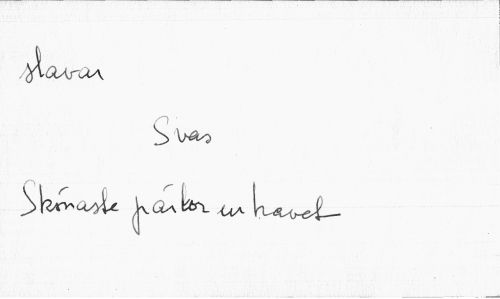 slavar
Svas
Skönaste pärlor ur havet